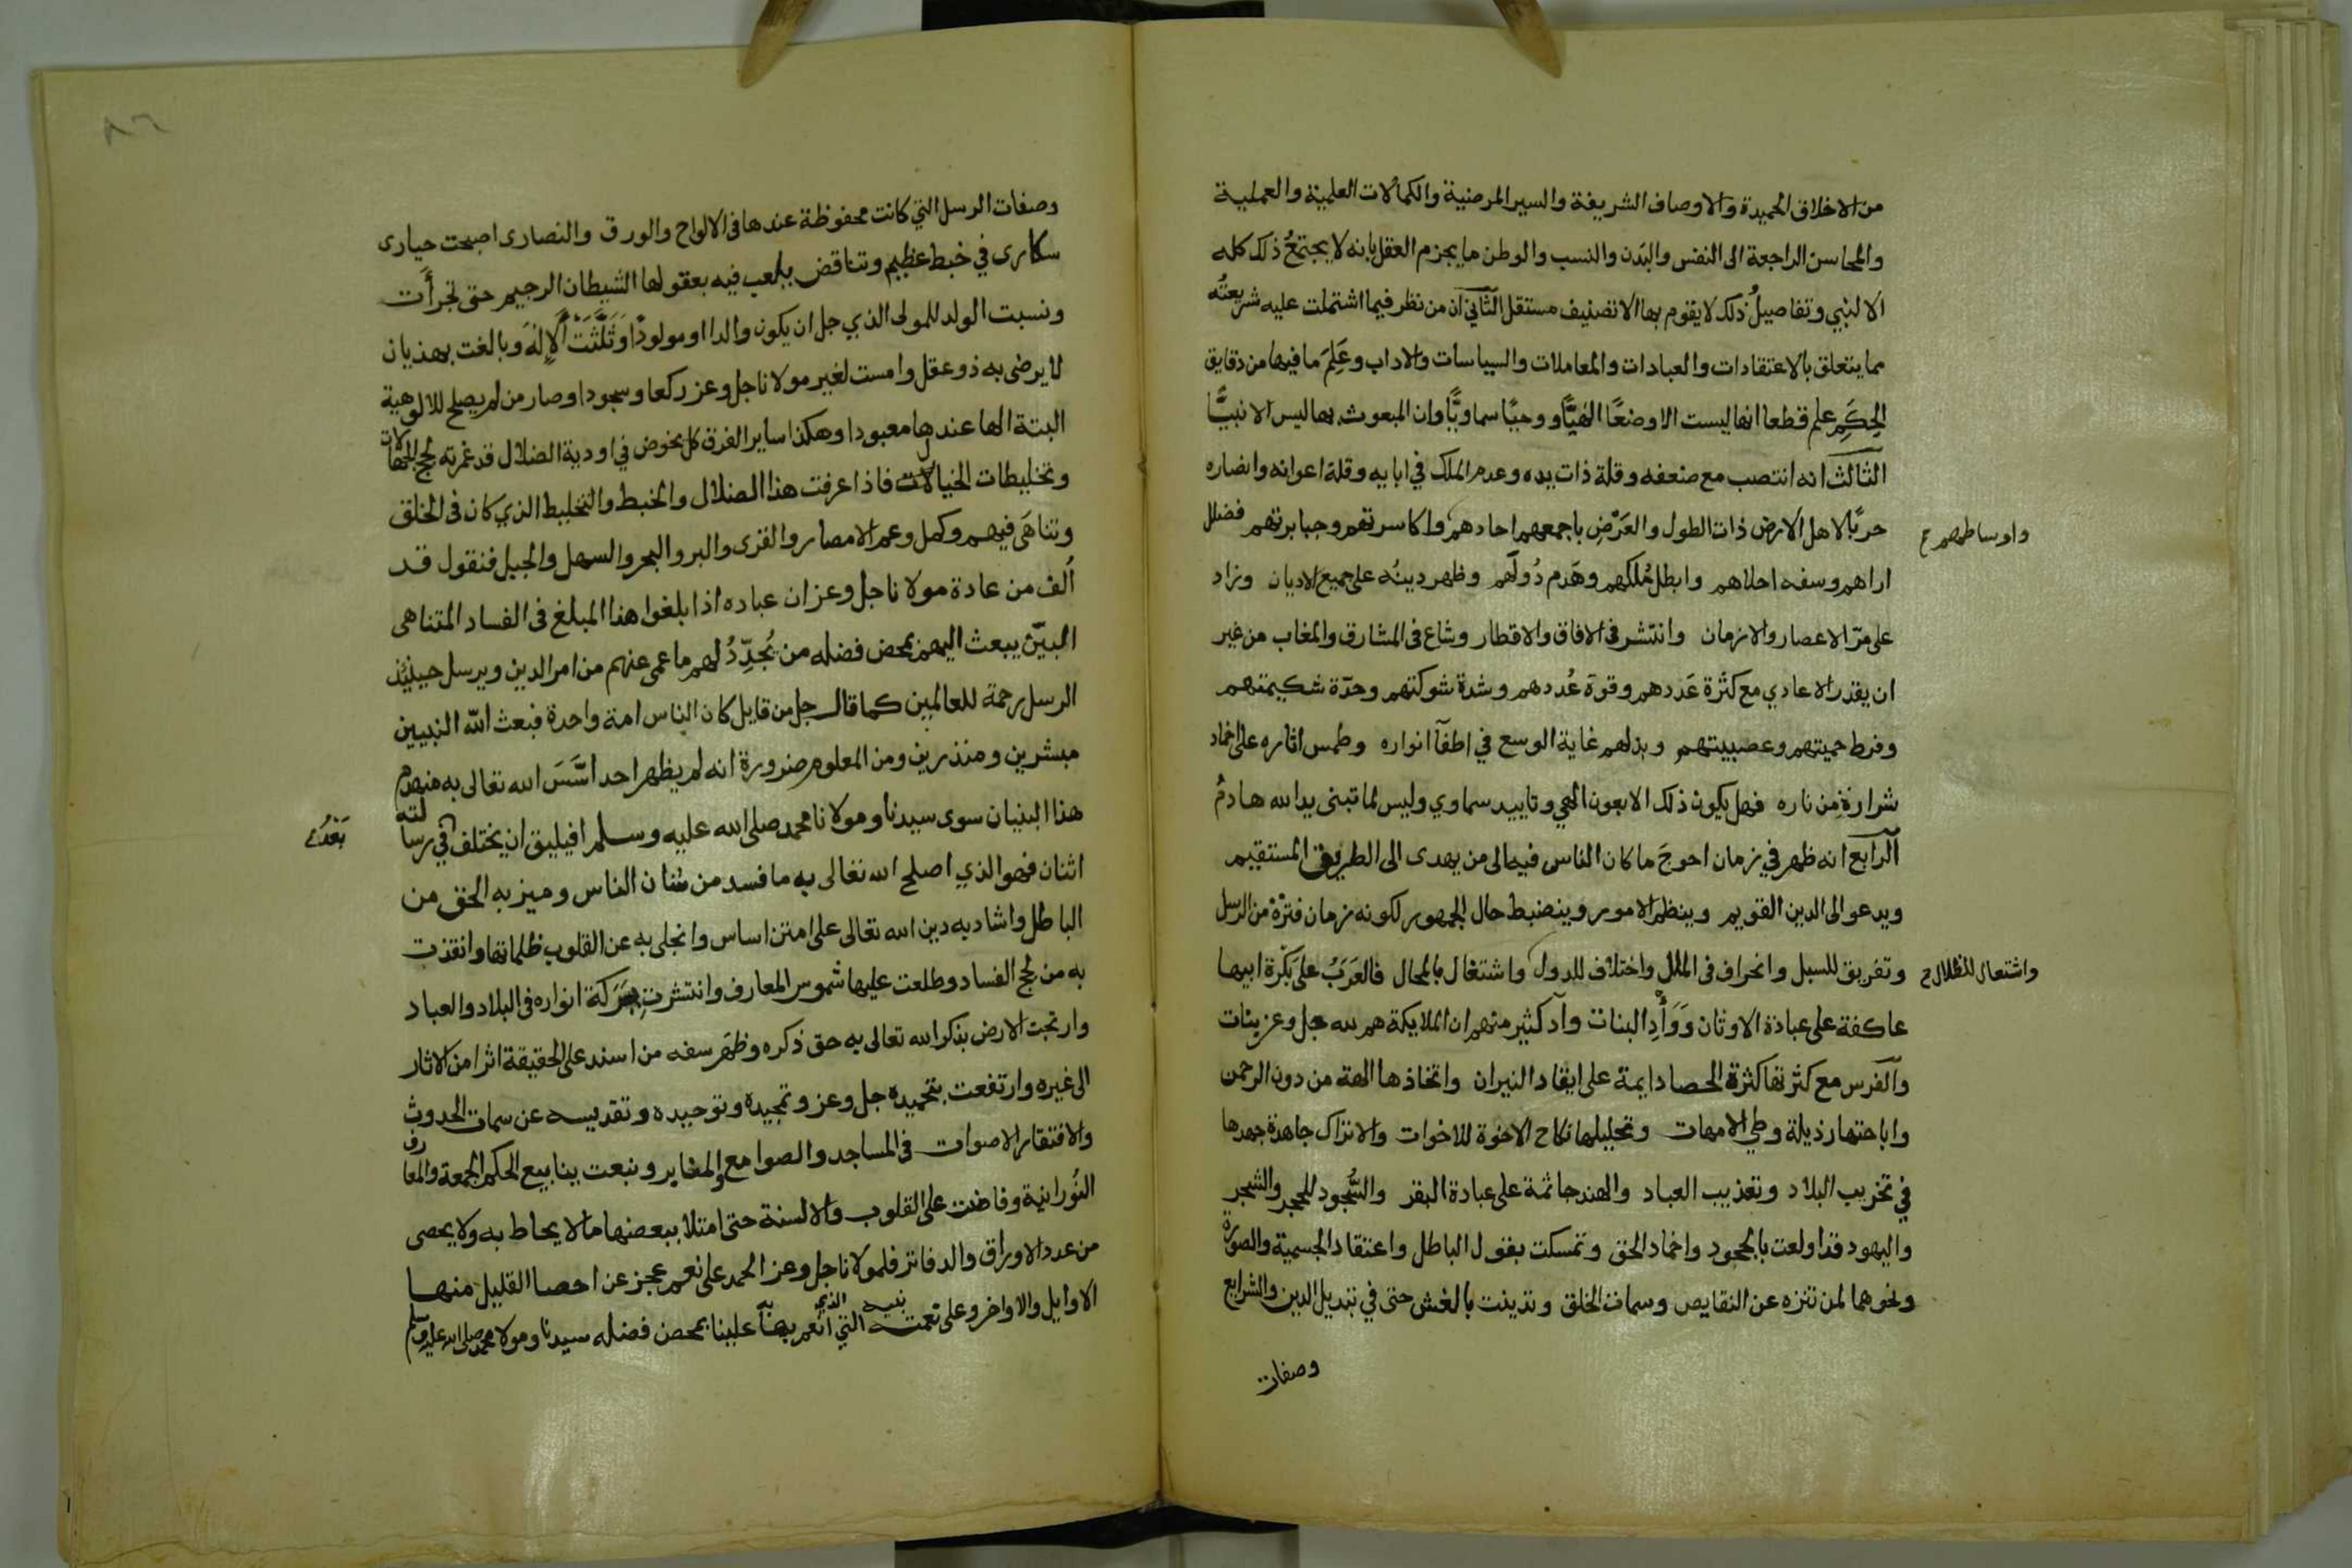 من الاخلاق الحميدة والاوصاف الشريفة والسير المرضية والكمالات العلمية والعملية
والمحاسن الراجعة الى النفس والبَدن والنسب والوطن ما يجزم العقل بانه لا يجتمعُ ذلك كله
الا لنبي وتفاصيلُ ذلك لا يقوم بها الا تصنيف مستقل الثاني ان من نظر فيما اشتملت عليه شريعتُه
مما يتعلق بالاعتقادات والعبادات والمعاملات والسياسات والاداب وعَلِمَ ما فيها من دقايق
الحِكَمِ علم قطعا انها ليست الا وضعًا الٰهيًّا ووحيًا سماويًّا وان المبعوث بها ليس الا نبيًّا
الثالث انه انتصب مع ضعفه وقلة ذات يده وعدم الملك في ابايه وقلة اعوانه وانصاره
حربًا لاهل الارض ذات الطول والعَرْضِ باجمعهم احادهم واكاسرتهم وجبابرتهم فضلل
واوساطهم ح
اراهم وسفه احلاهم وابطل مُلكهم وهَدم دُولَهم وظهر دينُه على جميع الاديان وزاد
على مرّ الاعصار والازمان وانتشر في الافاق والاقطار وشاع في المشارق والمغاب من غير
ان يقدر الاعادي مع كثرة عَددهم وقوة عُددهم وشدة شوكتهم وحدّة شكيمتهم
وفرط حميتهم وعصبيتهم وبذلهم غاية الوسع في اطفآ انواره وطمس اثاره على اخماد
شرارةٍ من ناره فهل يكون ذلك الا بعون الهي وتاييد سماوي وليس لما تبنى يد الله هادمُ
الرابع انه ظهر في زمان احوجَ ما كان الناس فيه الى من يهدى الى الطريق المستقيم
ويدعو الى الدين القويم وينظم الامور وينضبط حال الجمهور لكونه زمان فترة من الرسل
وتفريق للسبل وانحراف في الملل واختلاف للدول واشتغال بالمحال فالعَرَبُ على بَكْرة ابيها
واشتعال للضلال ح
عاكفة على عبادة الاوثان وَوَأْدِ البنات وآد كثير منهم ان الملايكة هم لله جل وعز بنات
والفرس مع كثرتها كثرة الحصا دايمة على ايقاد النيران واتخاذها الهة من دون الرحمن
واباحتها رذيلة وطي الامهات وتحليلها نكاح الاخوة للاخوات والاتراك جاهدة جهدها
في تخريب البلاد وتعذيب العباد والهند جاثمة على عبادة البقر والسُّجود للحجر والشجر
واليهود قد اولعت بالجحود واخماد الحق وتمسكت بقول الباطل واعتقاد الجسمية والصورة
ونحوهما لمن تنزه عن النقايص وسمات الخلق وتدينت بالغش حتى في تبديل الدين والشرايع
وصفات
وصفات الرسل التي كانت محفوظة عندها في الالواح والورق والنصارى اصبحت حيارى
سكارى في خبط عظيم وتناقض يلعب فيه بعقولها الشيطان الرجيم حتى تجرأت
ونسبت الولد للمولى الذي جل ان يكون والدا او مولودًا وَثَلَّثَتْ الالٰهَ وبالغت بهذيان
لا يرضى به ذو عقل وامست لغير مولانا جل وعز ركعا وسجودا وصار من لم يصلح للالوهية
البتة الها عندها معبودا وهكذا ساير الفرق كل يخوض في اودية الضلال قد غمرته لجج الجهالات
وتخليطات الخيالات فاذا عرفت هذا الضلال والخبط والتخليط الذي كان في الخلق
وتناهَى فيهم وكمل وعم الامصار والقرى والبر والبحر والسهل والجبل فنقول قد
أُلف من عادة مولانا جل وعز ان عباده اذا بلغوا هذا المبلغ في الفساد المتناهى
البيّن يبعث اليهم بمحض فضله من يُجدِّدُ لهم ما عمى عنهم من امر الدين ويرسل حينيذ
الرسل رحمة للعالمين كما قال جل من قايل كان الناس امة واحدة فبعث الله النبيين
مبشرين ومنذرين ومن المعلوم ضرورة انه لم يظهر احد اسَّسَ الله تعالى به منهدم
هذا البنيان سوى سيدنا ومولانا محمد صلى الله عليه وسلم افيليق ان يختلف في رسالته
بَعْدُ ح
اثنان فهو الذي اصلح الله تعالى به ما فسد من شان الناس وميز به الحق من
الباطل واشاد به دين الله تعالى على امتن اساس وانجلى به عن القلوب ظلماتها وانقذت
به من لجج الفساد وطلعت عليها شموس المعارف وانتشرت بِبَرَكة انواره في البلاد والعباد
وارتجت الارض بذكر الله تعالى به حق ذكره وظهَر سفه من اسند على الحقيقة اثرا من الاثار
الى غيره وارتفعت بتحميده جل وعز وتمجيده وتوحيده وتقديسه عن سمات الحدوث
والافتقار الاصوات في المساجد والصوامع والمنابر ونبعت ينابيع الحكم الجمعة والمعارف
النُورانية وفاضت على القلوب والالسنة حتى امتلا ببعضها ما لا يحاط به ولا يحصى
من عدد الاوراق والدفاتر فلمولانا جل وعز الحمد على نعم عجز عن احصا القليل منها
الاوايل والاواخر وعلى نعمته التي انعم بها علينا بمحض فضله سيدنا ومولا محمد صلى الله عليه وسلم
نبيه الذي به